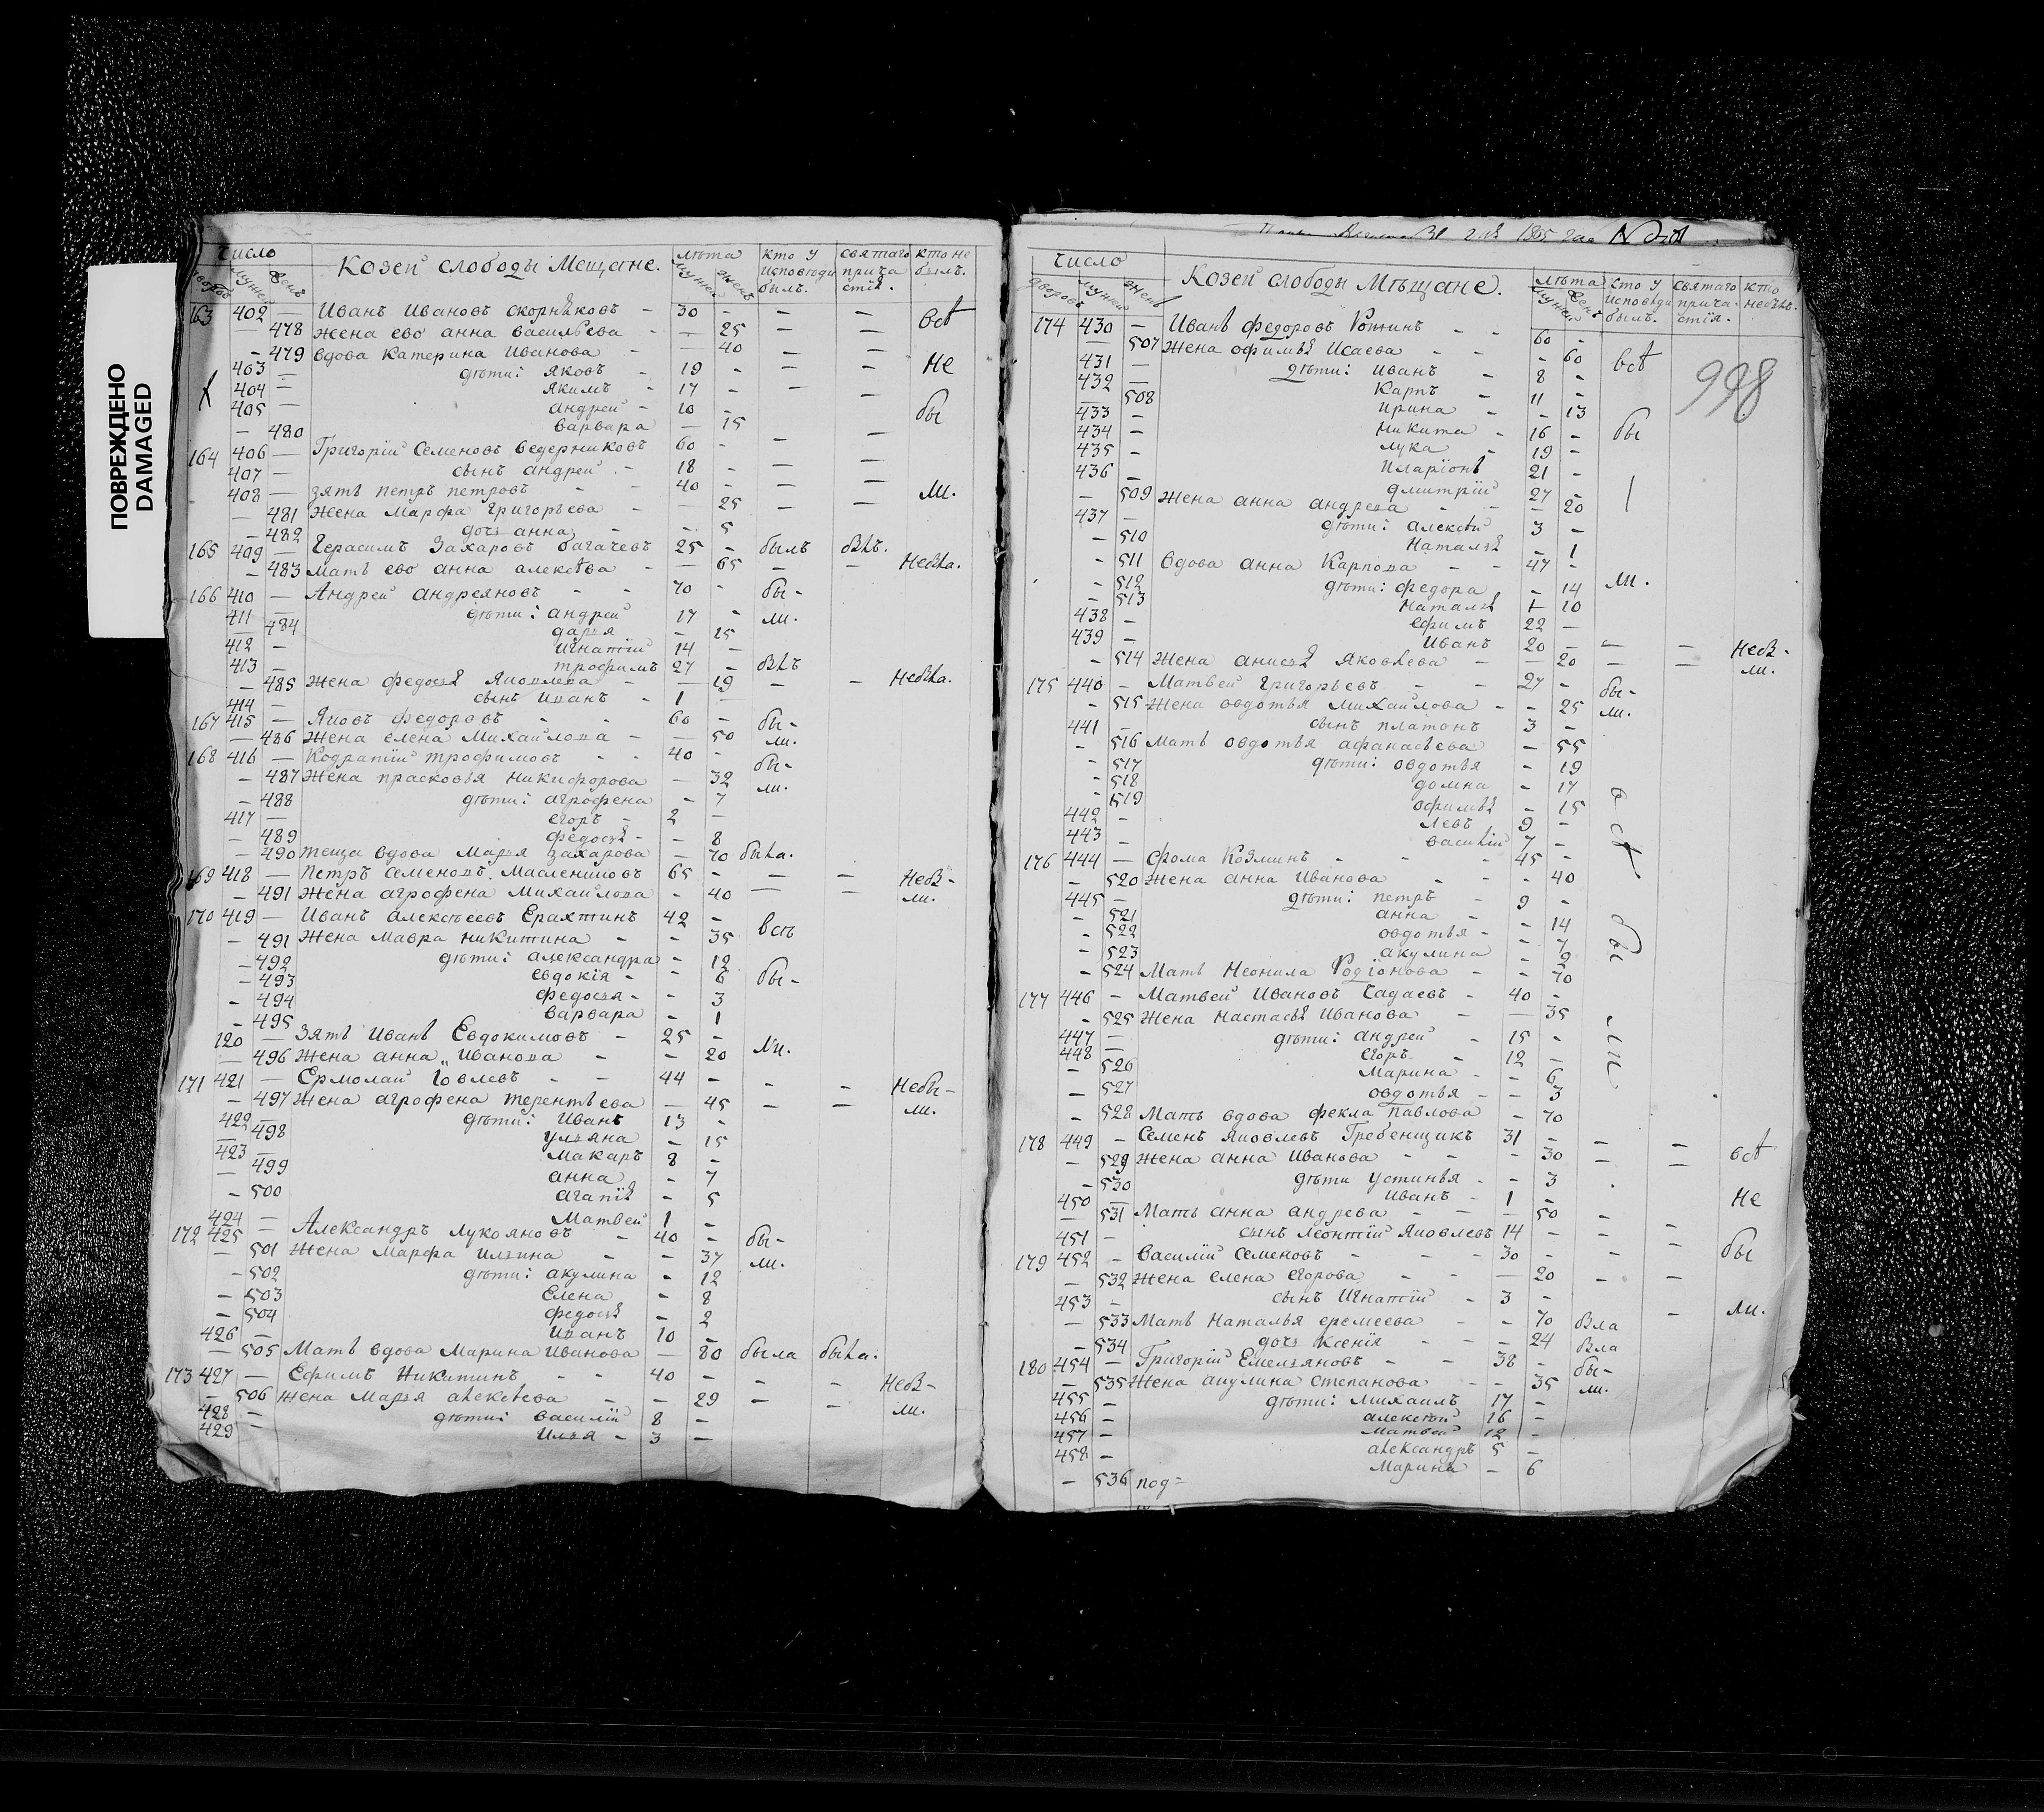 ПОВРЕЖДЕНО
DAMAGED
число Козей слободы Мещане. лѣта кто у исповѣди былъ. святаго прича стія. кто не былъ.
дворовъ мужск женск мужск женск
163 402 — Иванъ Ивановъ скорняковъ - 30 - - - всѣ
478 жена ево анна васильева - - 25 - -
- 479 вдова катерина Иванова - - 40 - -
403 — дѣти: яковъ - 19 - - - не
404 — якимъ - 17 - - -
405 — андрей - 10 - бы
- 480 варвара - 15
164 406 — Григорій Семеновъ ведерниковъ 60 - - -
407 — сынъ андрей - 18 - - -
408 — зять петръ петровъ - - 40 - - - ли.
— 481 жена Марфа григорьева - - 25 - -
- 482 дочь анна - - 5
165 409 — Герасимъ Захаровъ багачевъ 25 - былъ
- 483 мать ево анна алексѣева - - 65 - -
166 410 — Андрей андреяновъ - - 70 - бы-
411 — дѣти: андрей 17 - ли.
— 484 дарья - 15
412 - игнатій 14 -
413 - трофимъ 27 -
- 485 жена федосья яковлева - - 19 - -
414 — сынъ иванъ - 1 -
167 415 — яковъ федоровъ - - 60 - бы-
— 486 жена елена Михайлова - - 50 ли.
168 416 — Кодратій трофимовъ - - 40 - бы-
- 487 жена прасковья никифорова - 32 ли.
- 488 дѣти: агрофена - 7
417 — егоръ - 2 -
— 489 федосья - - 8
- 490 теща вдова Марья захарова - 70 была.
169 418 — петръ семеновъ Маслениковъ 65 - - -
- 491 жена агрофена Михайлова - 40 — - ли.
170 419 — Иванъ алексеевъ Ерахтинъ 42 - всѣ
- 491 жена мавра никитина - - 35
- 492 дѣти: александра - - 12
- 493 евдокія - - 6 бы-
- 494 федосья - - 3
- 495 варвара - 1
120 — зять Иванъ Евдокимовъ - 25 -
— 496 жена анна Иванова - - 20 ли.
171 421 — Ермолай Іовлевъ - - 44 - - - небы-
- 497 жена агрофена терентьева - 45 - - ли.
422 — дѣти: Иванъ 13 -
— 498 ульяна - 15
423 — макаръ 8 -
— 499 анна - 7
- 500 агапія - 5
424 — Матвей 1 -
172 425 — Александръ Лукояновъ - 40 - бы-
— 501 жена Марфа ильина - - 37 ли.
- 502 дѣти: акулина - 12
- 503 Елена - 8
- 504 федосья - 2
426 — иванъ 10 -
— 505 Мать вдова Марина Иванова - 80 была была.
173 427 — Ефимъ Никитинъ - - 40 - - -
- 506 жена Марья алексѣева - - 29 - - ли.
428 — дѣти: василій 8 -
429 — илья - 3 -
1805 года
998
число Козей слободы Мѣщане. лѣта кто у исповѣди былъ. святаго прича стія. кто небылъ.
дворовъ мужск женск мужск женск
174 430 - Иванъ федоровъ - - 60 -
— 507 жена офимья Исаева - - - 60 всѣ
431 — дѣти: Иванъ - 8 -
432 — Карпъ - 11 -
— 508 ирина - - 13
433 - никита - 16 - бы
434 - лука - 19 -
435 - иларіонъ 21 -
436 - дмитрій 27 -
— 509 жена анна андреева - - - 20
437 — дѣти: алексѣй 3 -
- 510 наталья - 1
- 511 вдова анна Карпова - - 47 -
- 512 дѣти: федора - 14 ли.
- 513 наталья 1 10
438 - ефимъ 22 -
439 - иванъ 20 - - -
- 514 жена анисья яковлева - - 20 - - ли.
175 440 - Матвей григорьевъ - - 27 - бы-
- 515 жена овдотья михайлова - - 25 ли.
441 — сынъ платонъ 3 -
- 516 Мать овдотья афанасьева - 55
- 517 дѣти: овдотья - 19
- 518 домна - 17
- 519 офимья - 15
442 - левъ 9 -
443 - василій 7 -
176 444 — фома Козминъ - - - 45 -
- 520 жена анна Иванова - - - 40
445 — дѣти: петръ - 9 -
- 521 анна - - 14
- 522 овдотья - - 7
- 523 акулина - 9
- 524 Мать Неонила Родіонова - - 70
177 446 - Матвей Ивановъ Чадаевъ - 40 -
- 525 жена настасья Иванова - — 35
447 — дѣти: андрей - 15 -
448 — егоръ - 12 -
— 526 марина - - 6
- 527 овдотья - - 3
- 528 Мать вдова фекла павлова - 70
178 449 - Семенъ яковлевъ Гребенщикъ 31 - - -
— 529 жена анна Иванова - - - 30 - - всѣ
- 530 дѣти устинья - - 3
450 — иванъ - 1 - не
— 531 Мать анна андрева - - - 50 -
451 - сынъ леонтій яковлевъ 14 - - -
179 452 - василій семеновъ - - - 30 - - - бы
— 532 жена елена егорова - - — 20 - -
453 - сынъ игнатій - 3 -
— 533 Мать наталья еремеева - - 70 - ли.
- 534 дочь ксенія - - - 24
180 454 — Григорій Емельяновъ - - 38 - бы-
— 535 жена акулина степанова - - 35 ли.
455 - дѣти: михаилъ 17 -
456 - алексѣй 16 -
457 - матвей 12 -
458 - александръ 5 -
- 536 марина - 6
под=